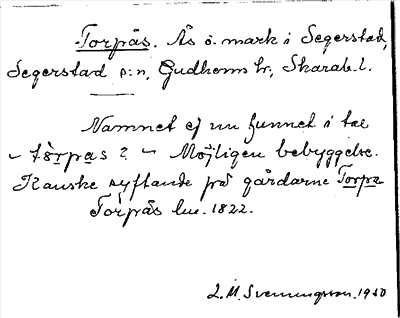 Torpås. Ås o. mark i Segerstad,
Segerstad s:n, Gudhems hr, Skarab. l.
Namnet ej nu funnet i tal
~ tòrpas ? ~ Möjligen bebyggelse.
Kanske syftande på gårdarne Torpa
Torpås lm. 1822.
L. M. Svenungsson. 1950